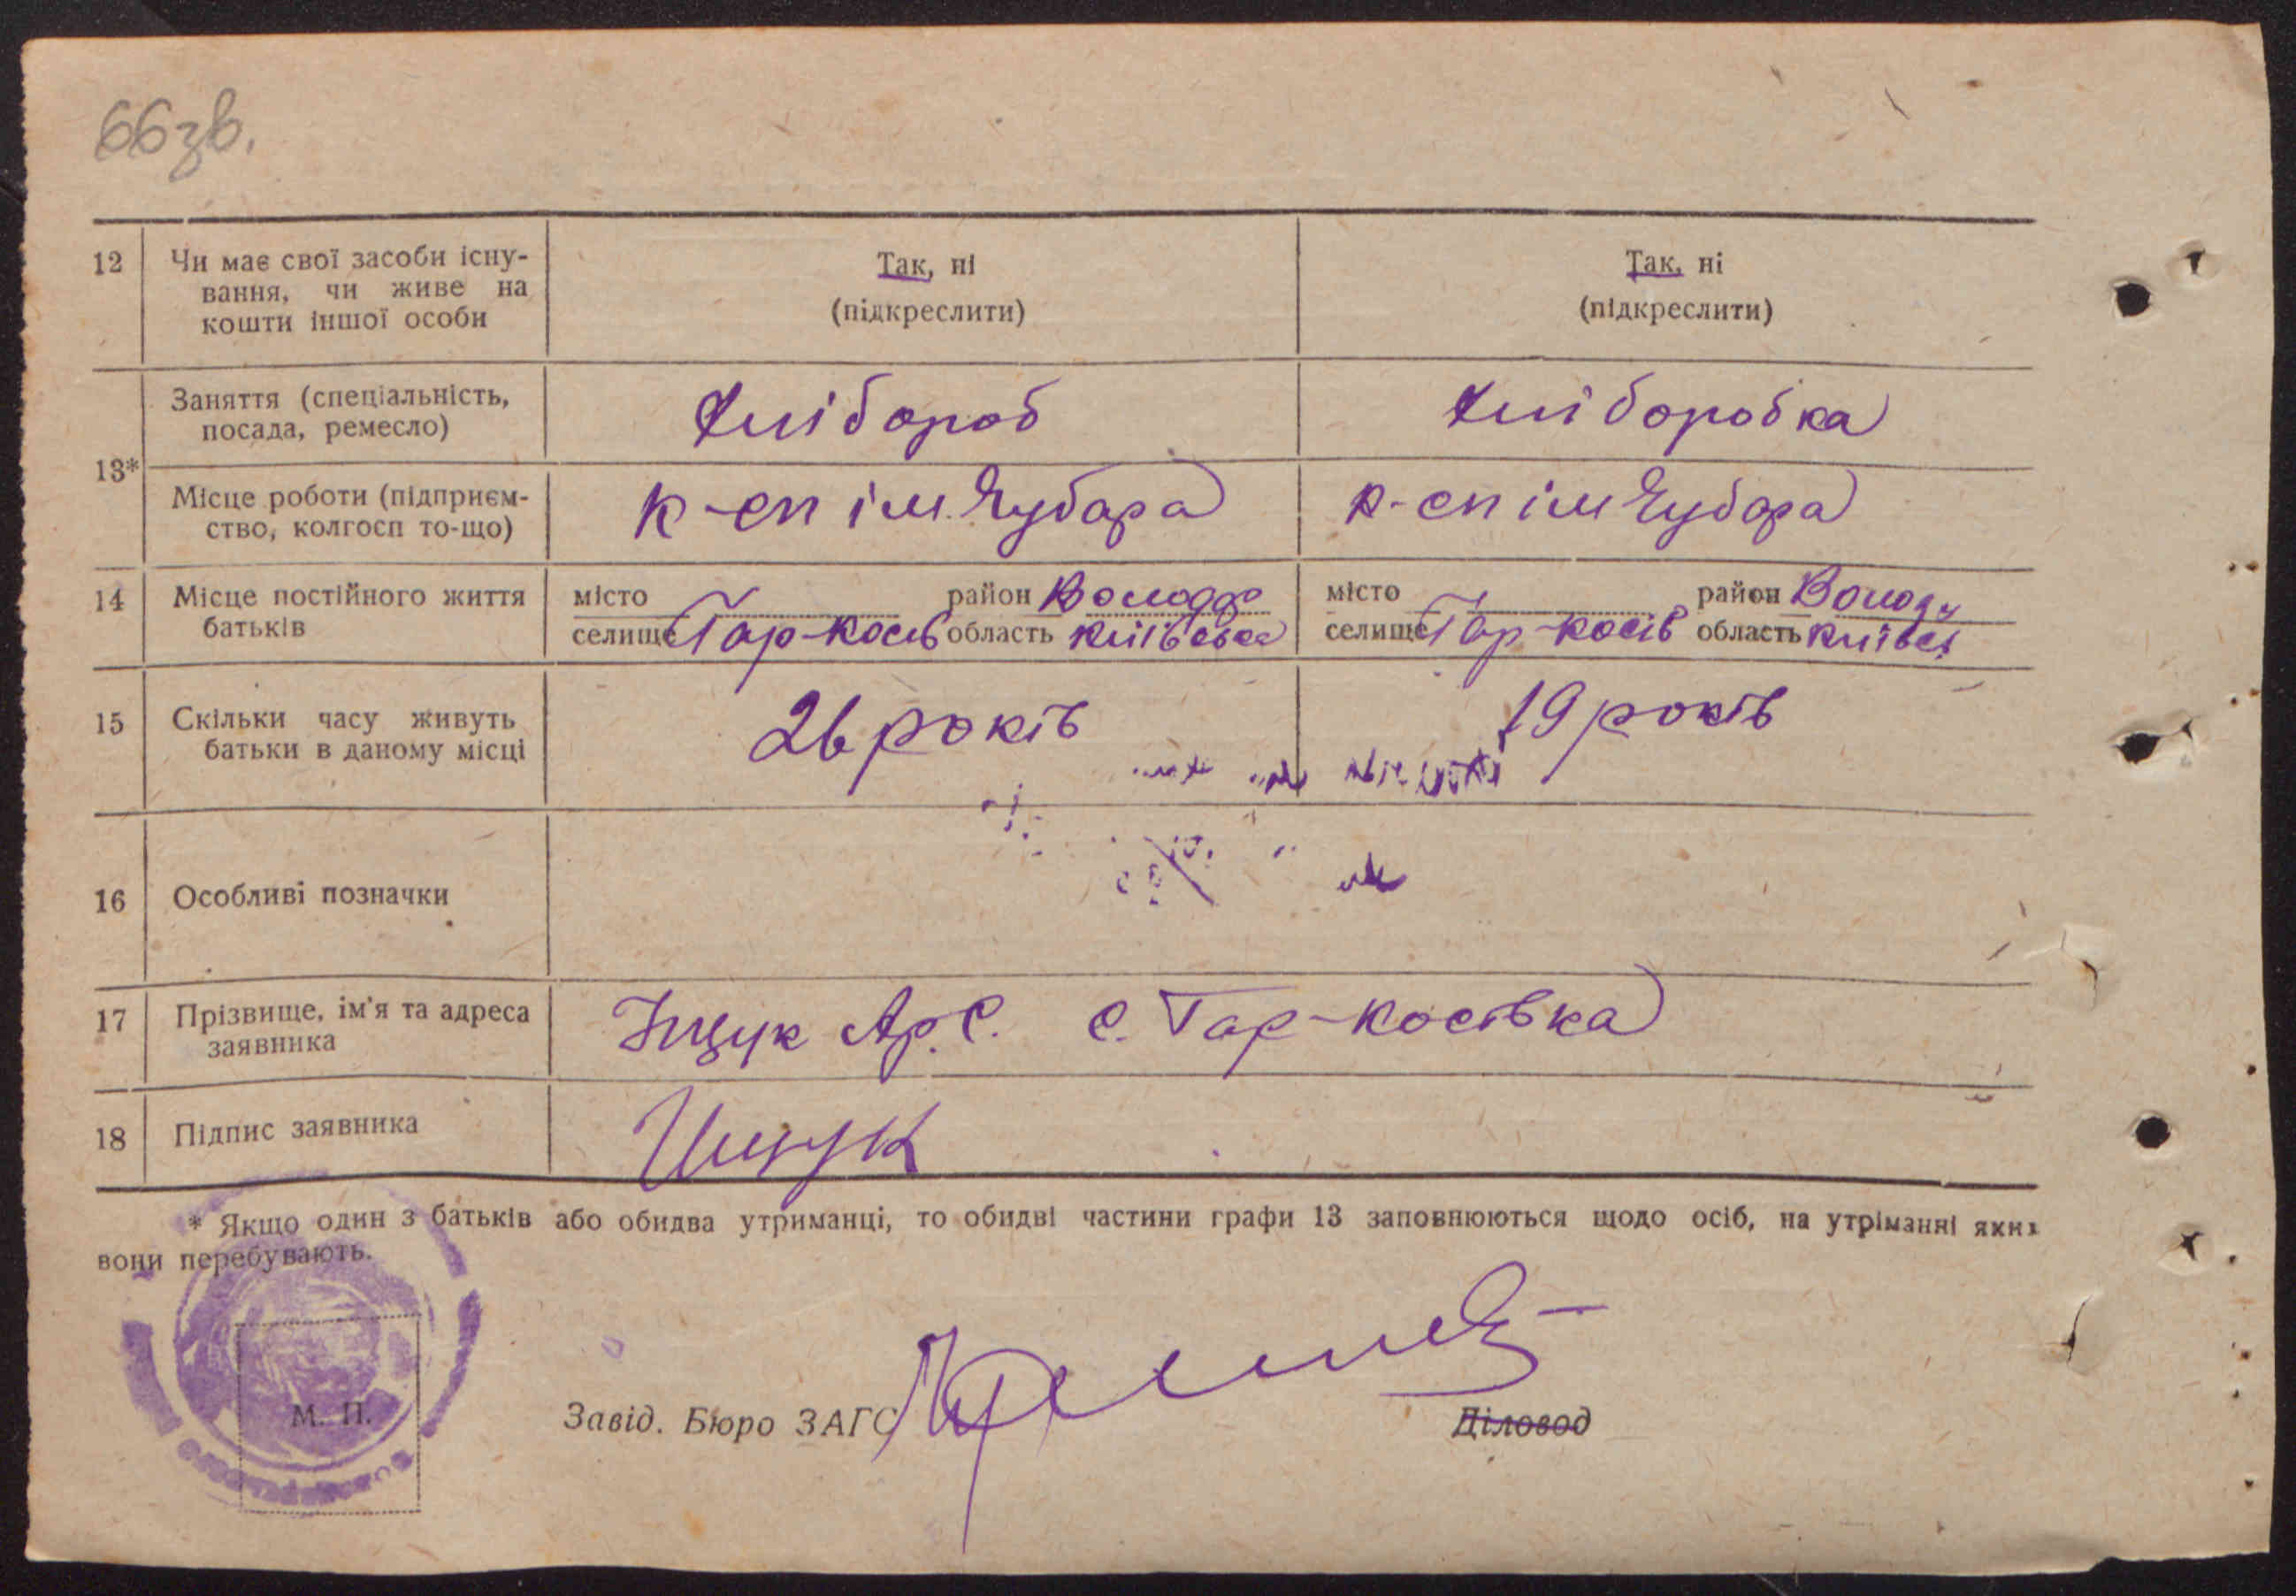 66зв.
12 Чи має свої засоби існу-
вання, чи живе на
кошти іншої особи
Так, ні
(підкреслити)
Так, ні
(підкреслити)
13*
Заняття (спеціальність,
посада, ремесло)
Хлібороб
Хліборобка
Місце роботи (підприєм-
ство, колгосп то-що)
к-сп ім Чубаря
к-сп ім Чубаря
14 Місце постійного життя
батьків
місто район Володар
селище Гар-Косів область Київська
місто район Волод
селище Гар-Косів область Київсь
15 Скільки часу живуть
батьки в даному місці
26 років
19 років
16 Особливі позначки
17 Прізвище, ім'я та адреса
заявника
Іщук Ар. С. с. Гар-Косівка
18 Підпис заявника
Ищук
* Якщо один з батьків або обидва утриманці, то обидві частини графи 13 заповнюються щодо осіб, на утріманні яких
вони перебувають.
М. П.
Завід. Бюро ЗАГС
Діловод